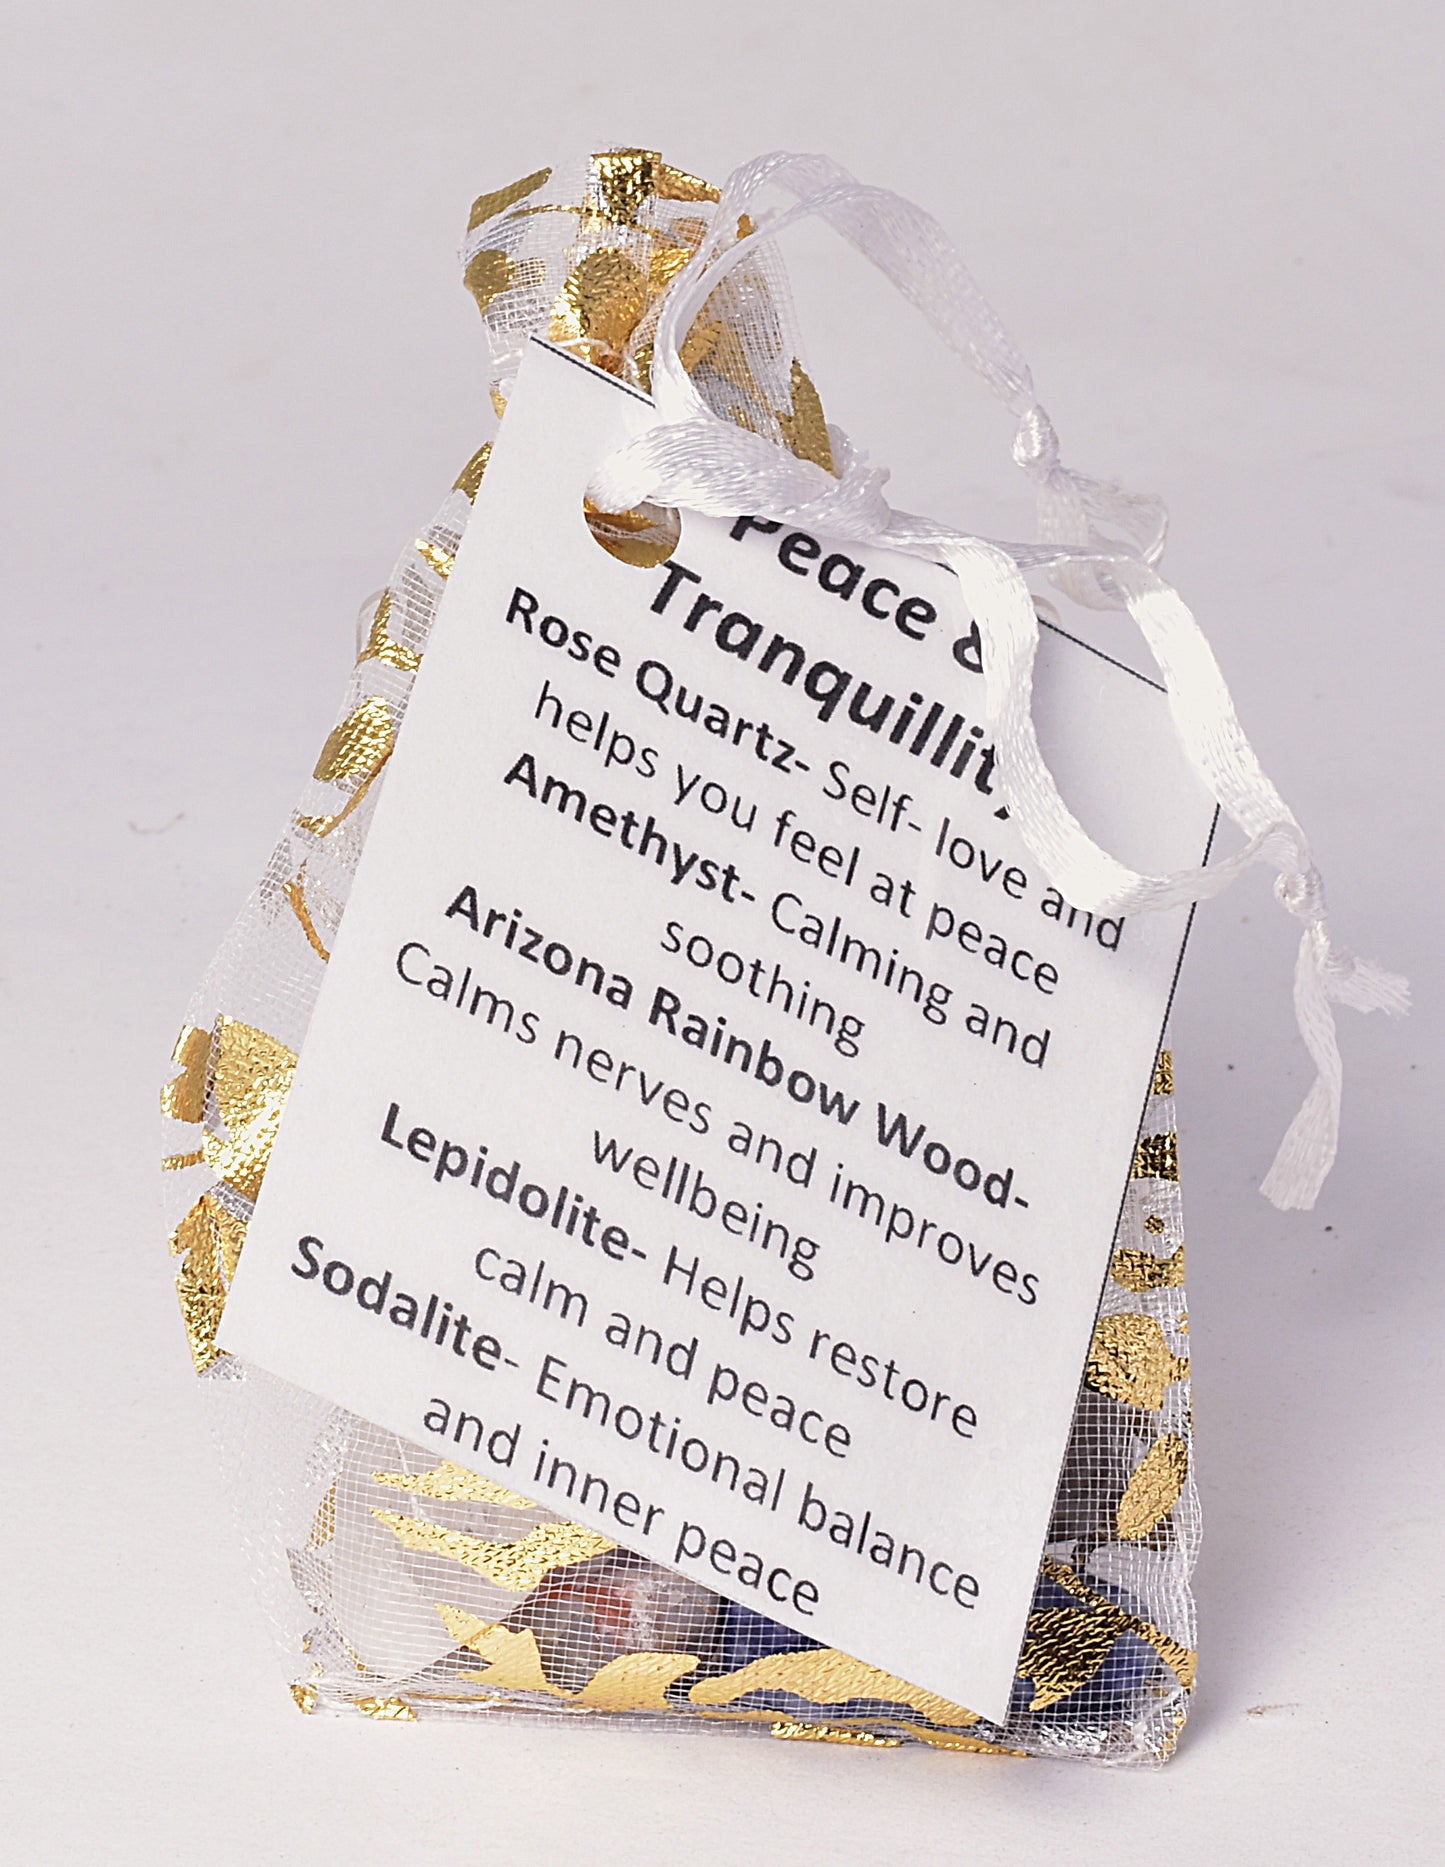 Peace &
Tranquillity
Rose Quartz- Self- love and
helps you feel at peace
Amethyst- Calming and
soothing
Arizona Rainbow Wood-
Calms nerves and improves
wellbeing
Lepidolite- Helps restore
calm and peace
Sodalite- Emotional balance
and inner peace